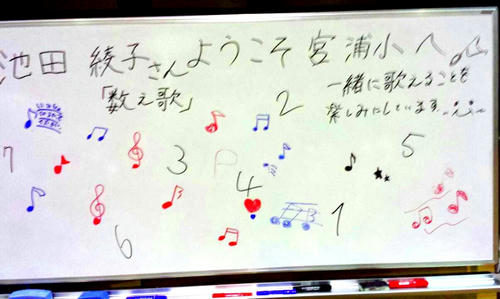 池田 綾子さんようこそ宮浦小へ
「数え歌」
一緒に歌えることを
楽しみにしています
2
5
7
3
4
1
6